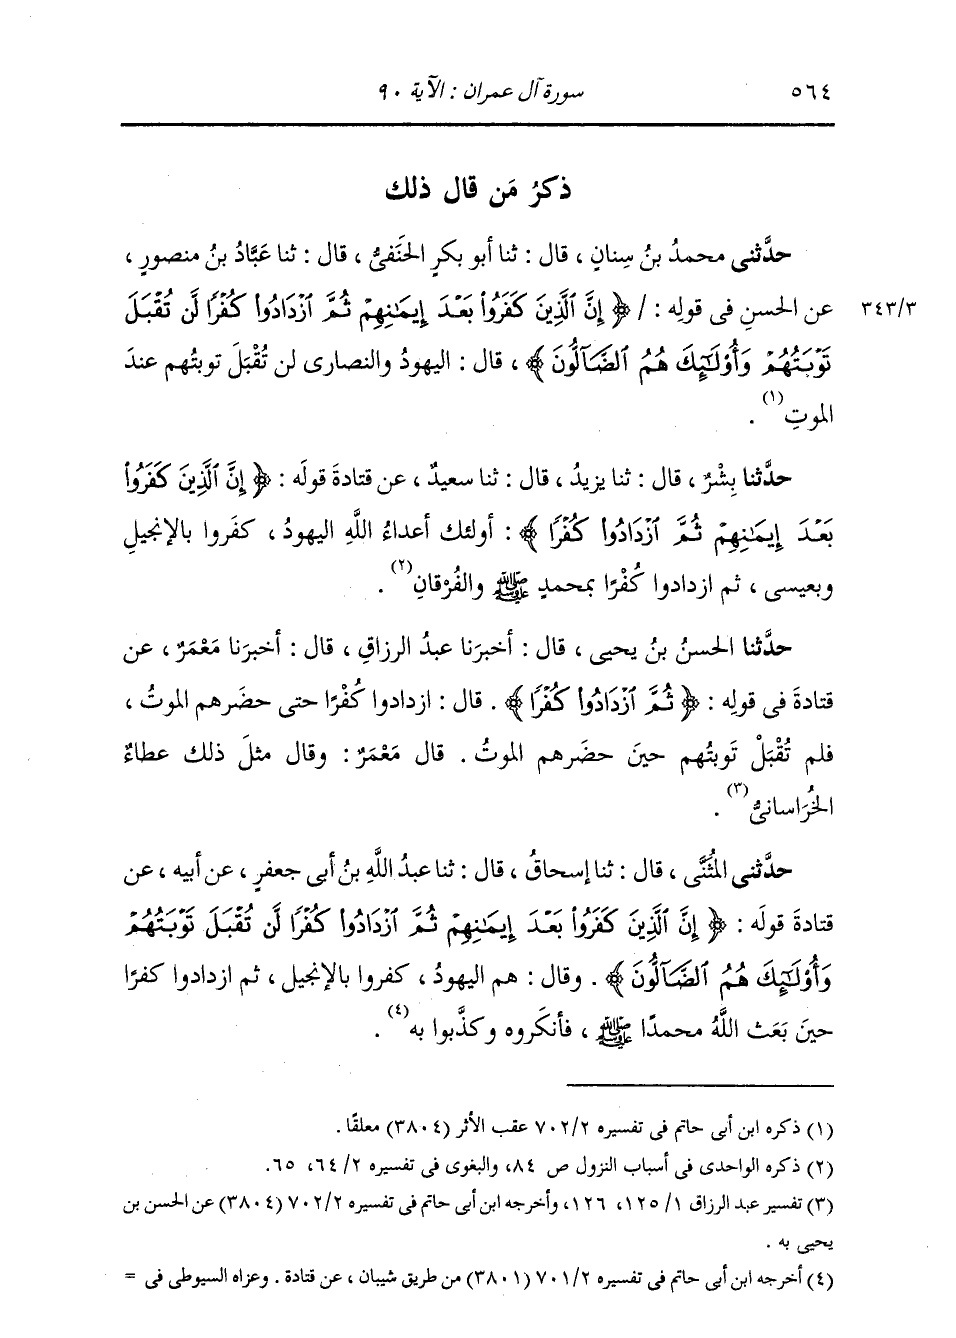 ٥٦٤ سورة آل عمران : الآية ٩٠
ذكرُ مَن قال ذلك
حدَّثنى محمدُ بنُ سِنانٍ ، قال : ثنا أبو بكرٍ الحَنَفىُّ ، قال : ثنا عَبَّادُ بنُ منصورٍ ،
٣٤٣/٣ عن الحسنِ فى قولِه : / ﴿ إِنَّ ٱلَّذِينَ كَفَرُوا۟ بَعْدَ إِيمَـٰنِهِمْ ثُمَّ ٱزْدَادُوا۟ كُفْرًا لَّن تُقْبَلَ
تَوْبَتُهُمْ وَأُو۟لَـٰٓئِكَ هُمُ ٱلضَّآلُّونَ ﴾ ، قال : اليهودُ والنصارى لن تُقْبَلَ توبتُهم عندَ
الموتِ(١) .
حدَّثنا بِشْرٌ ، قال : ثنا يزيدُ ، قال : ثنا سعيدٌ ، عن قتادةَ قولَه : ﴿ إِنَّ ٱلَّذِينَ كَفَرُوا۟
بَعْدَ إِيمَـٰنِهِمْ ثُمَّ ٱزْدَادُوا۟ كُفْرًا ﴾ : أولئك أعداءُ اللَّهِ اليهودُ ، كفَروا بالإنجيلِ
وبعيسى ، ثم ازدادوا كُفْرًا بمحمدٍ ﷺ والفُرْقانِ(٢) .
حدَّثنا الحسنُ بنُ يحيى ، قال : أخبرَنا عبدُ الرزاقِ ، قال : أخبرَنا مَعْمَرٌ ، عن
قتادةَ فى قولِه : ﴿ ثُمَّ ٱزْدَادُوا۟ كُفْرًا ﴾ . قال : ازدادوا كُفْرًا حتى حضَرهم الموتُ ،
فلم تُقْبَلْ تَوبتُهم حينَ حضَرهم الموتُ . قال مَعْمَرٌ : وقال مثلَ ذلك عطاءٌ
الخُرَاسانىُّ(٣) .
حدَّثنى المُثَنَّى ، قال : ثنا إسحاقُ ، قال : ثنا عبدُ اللَّهِ بنُ أبى جعفرٍ ، عن أبيه ، عن
قتادةَ قولَه : ﴿ إِنَّ ٱلَّذِينَ كَفَرُوا۟ بَعْدَ إِيمَـٰنِهِمْ ثُمَّ ٱزْدَادُوا۟ كُفْرًا لَّن تُقْبَلَ تَوْبَتُهُمْ
وَأُو۟لَـٰٓئِكَ هُمُ ٱلضَّآلُّونَ ﴾ . وقال : هم اليهودُ ، كفروا بالإنجيل ، ثم ازدادوا كفرًا
حينَ بَعَث اللَّهُ محمدًا ﷺ ، فأنكَروه وكذَّبوا به(٤) .
(١) ذكره ابن أبى حاتم فى تفسيره ٧٠٢/٢ عقب الأثر (٣٨٠٤) معلقًا .
(٢) ذكره الواحدى فى أسباب النزول ص ٨٤، والبغوى فى تفسيره ٢/ ٦٤، ٦٥.
(٣) تفسير عبد الرزاق ١/ ١٢٥، ١٢٦، وأخرجه ابن أبى حاتم فى تفسيره ٧٠٢/٢ (٣٨٠٤) عن الحسن بن
يحيى به .
(٤) أخرجه ابن أبى حاتم فى تفسيره ٧٠١/٢ (٣٨٠١) من طريق شيبان ، عن قتادة . وعزاه السيوطى فى =